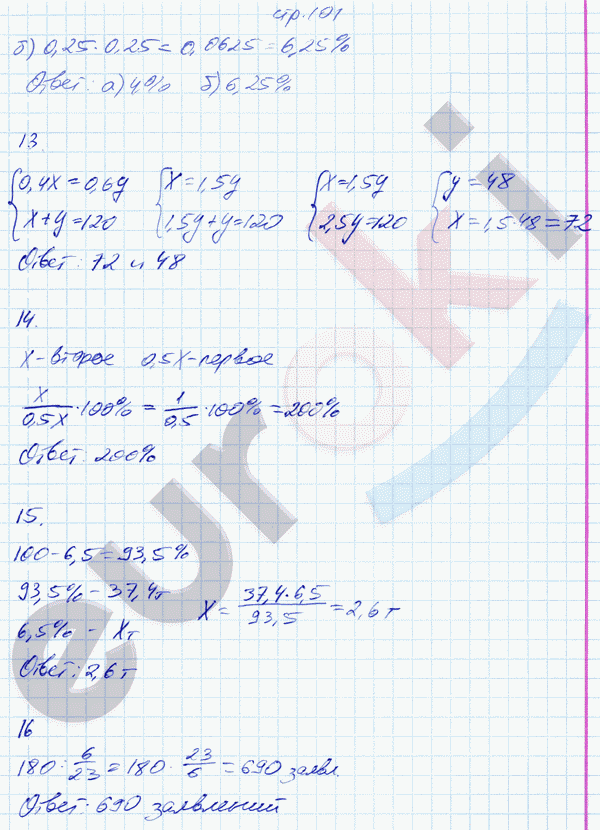 стр.101
б) 0,25·0,25=0,0625=6,25%
Ответ: а)4% б)6,25%
13.
{0,4x=0,6y {x=1,5y {x=1,5y {y=48
{x+y=120 {1,5y+y=120 {2,5y=120 {x=1,5·48=72
Ответ: 72 и 48
14.
x-второе 0,5x-первое
x/0,5x·100%=1/0,5·100%=200%
Ответ: 200%
15.
100-6,5=93,5%
93,5%-37,4т
6,5% - xт x=37,4·6,5/93,5=2,6 т
Ответ: 2,6 т
16
180:6/23=180·23/6=690 заявл.
Ответ: 690 заявлений
euroki